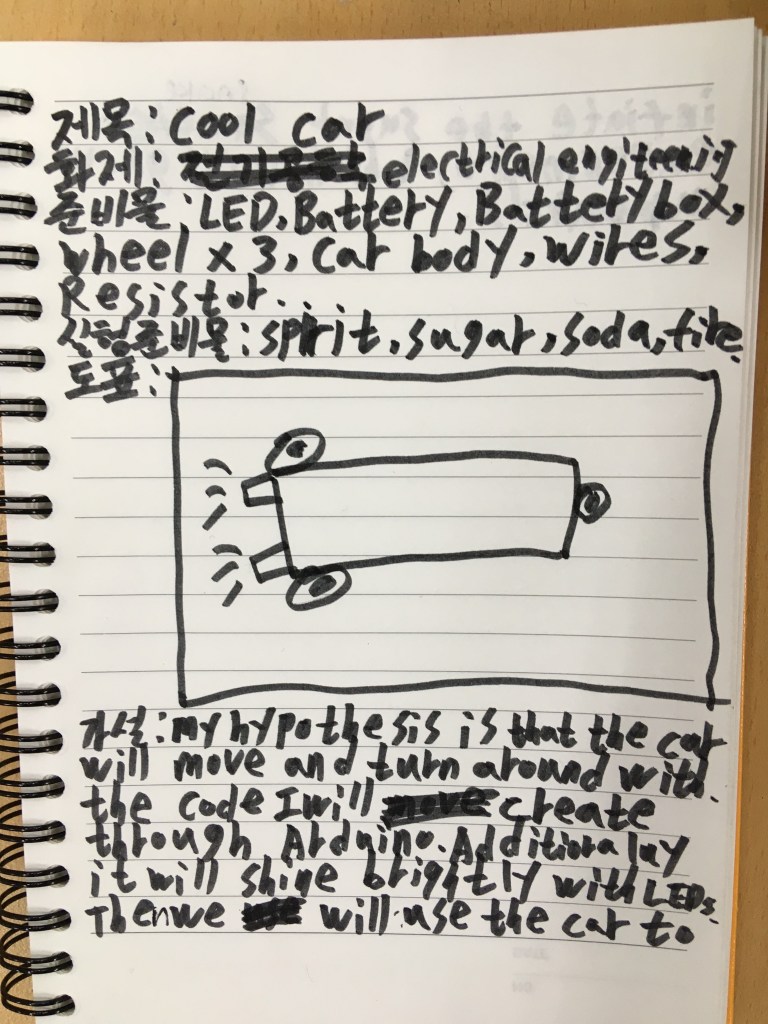 제목: Cool car
화제: electrical engiteering
준비물: LED, Battery, Battery box,
wheel x 3, Car body, wires,
Resistor.
실험준비물: spirit, sugar, soda, fire
도표:
가설: my hypothesis is that the car
will move and turn around with
the code I will create
through Arduino. Additionaluy
it will shine brightly with LEDs.
Then we will use the car to